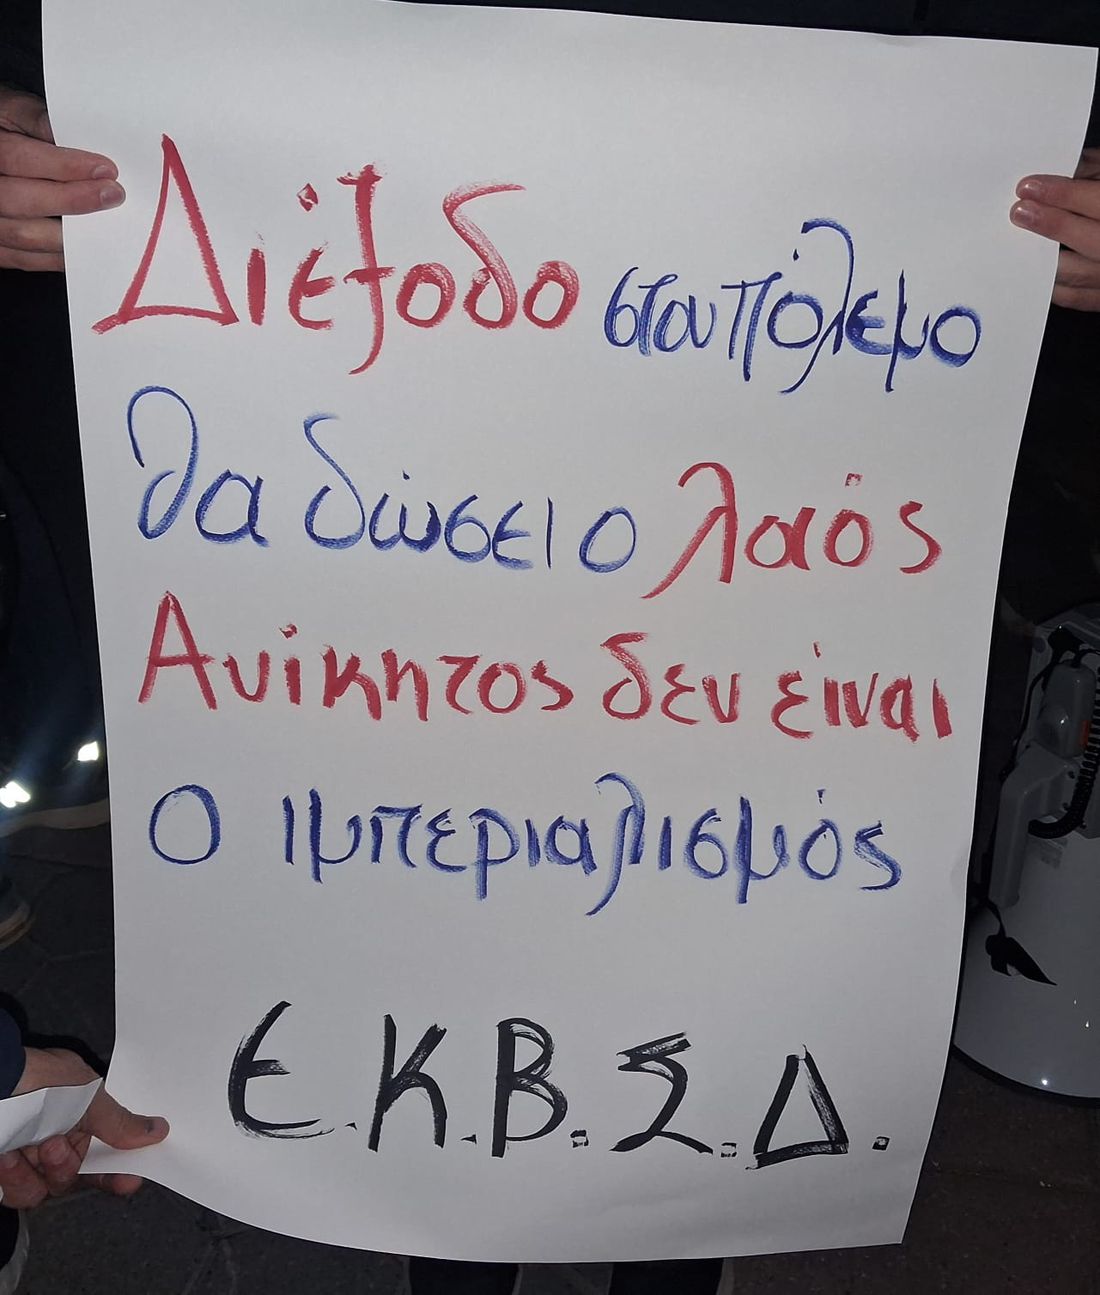 Διέξοδο στου πόλεμο
θα δώσει ο λαός
Ανίκητος δεν είναι
Ο ιμπεριαλισμός
Ε.Κ.Β.Σ.Δ.